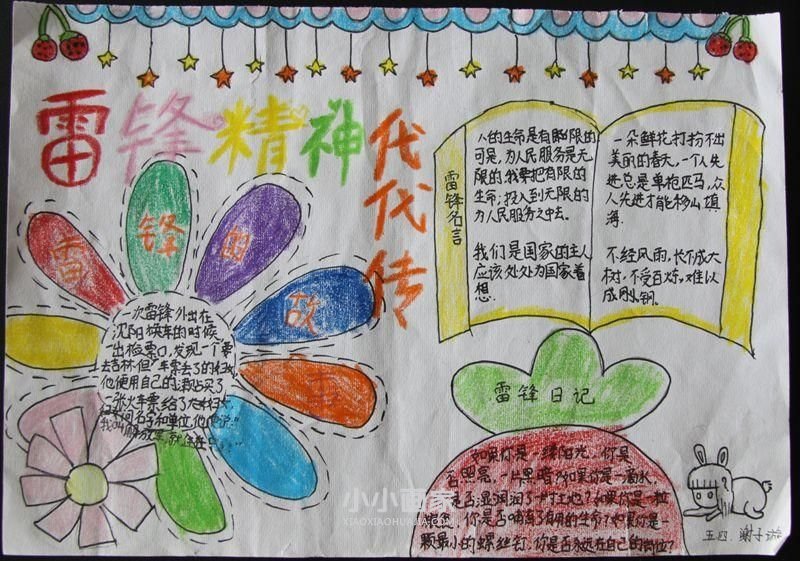 雷锋精神代代传
雷锋的故事
一次雷锋外出在
沈阳换车的时候
出检票口,发现一个
去吉林但车票
他使用自己的津贴买了
一张火车票
雷锋名言
人的生命是有限的
可是,为人民服务是无
限的,我要把有限的
生命,投入到无限的
为人民服务之中去。
我们是国家的主人
应该处处为国家着
想.
一朵鲜花打扮不出
美丽的春天,一个人先
进总是单枪匹马,众
人先进才能移山填
海.
不经风雨,长不成大
树,不受百炼,难以
成刚钢.
雷锋日记
如果你是一缕阳光,你是
否照亮一片黑暗?如果你是一滴水,
是否滋润了一寸土地?如果你是一粒
粮食,你是否哺育了有用的生命?如果你是一
颗最小的螺丝钉,你是否永远在自己的岗位?
小小画家
XIAOXIAOHUAJIA.COM
五四.谢子